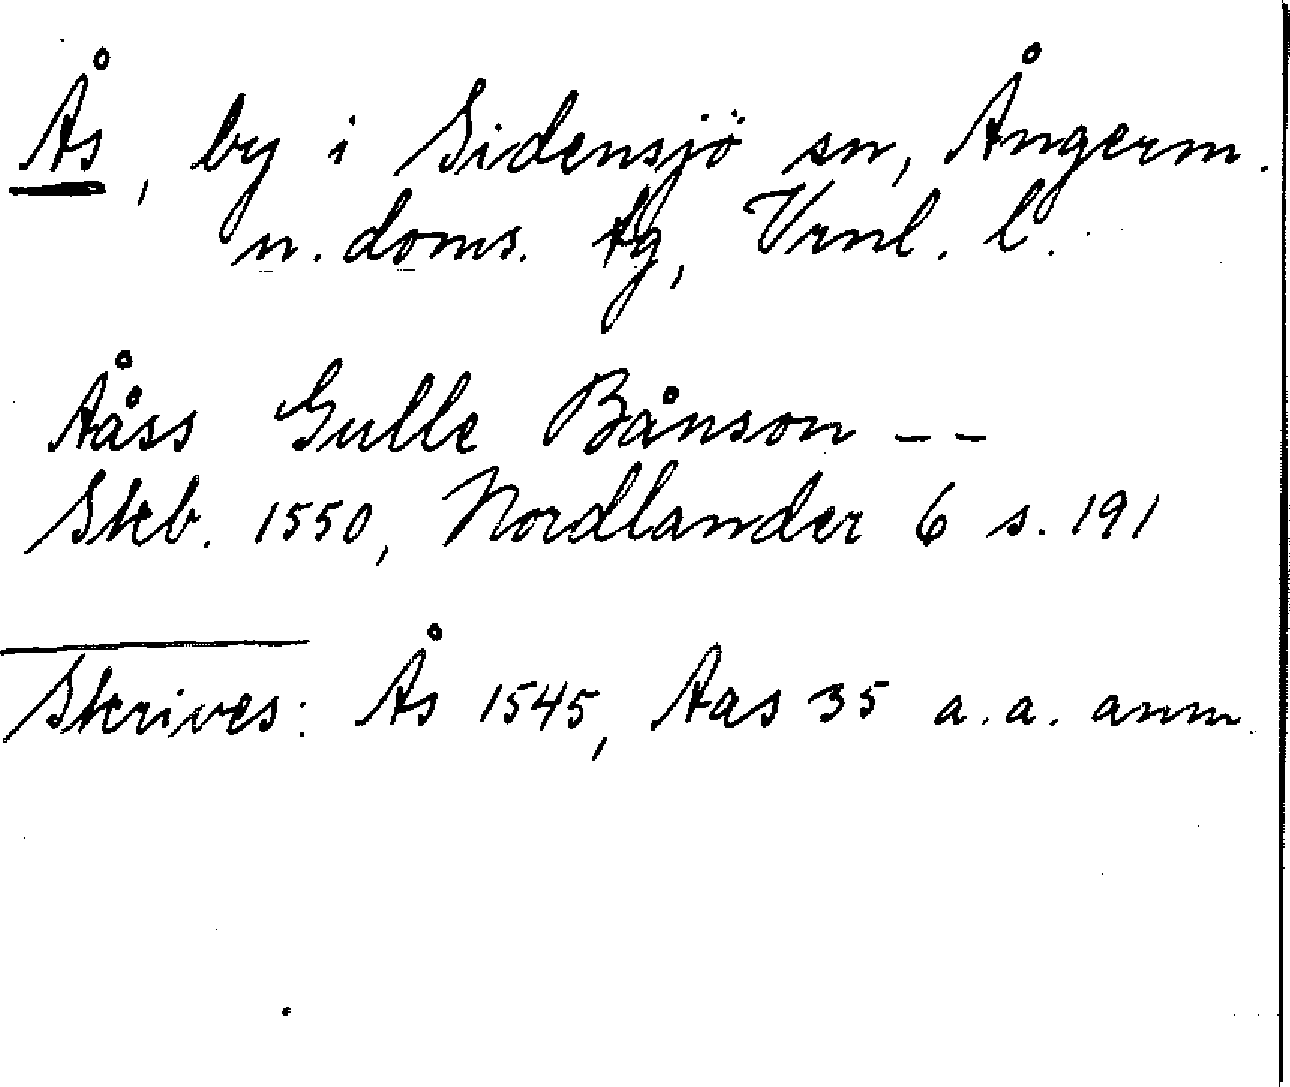 Ås, by i Sidensjö sn, Ångerm.
n. doms. tg, Vrnl. l.
Ååss Gulle Bånson --
Skb. 1550, Nordlander 6 s. 191
Skrives: Ås 1545, Aas 35 a.a. anm.